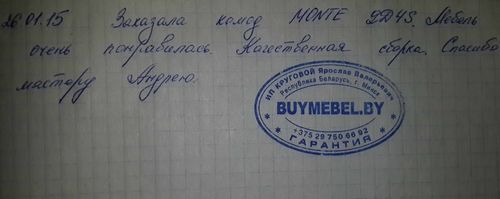 26.01.15 Заказала комод MONTE 2D4S. Мебель
очень понравилась. Качественная сборка. Спасибо
мастеру Андрею.
ИП КРУГОВОЙ Ярослав Валерьевич
Республика Беларусь, г. Минск
BUYMEBEL.BY
+375 29 750 66 92
ГАРАНТИЯ